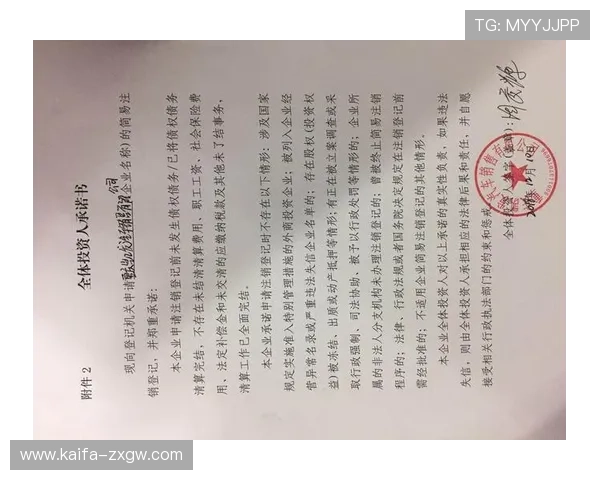 TG: MYYJJPP
附件 2
全体投资人承诺书
现向登记机关申请 公司 企业名称)的简易注
销登记，并郑重承诺：
本企业申请注销登记前未发生债权债务/已将债权债务
清算完结，不存在未结清清算费用、职工工资、社会保险费
用、法定补偿金和未交清的应缴纳税款及其他未了结事务，
清算工作已全面完结。
本企业承诺申请注销登记时不存在以下情形：涉及国家
规定实施准入特别管理措施的外商投资企业；被列入企业经
营异常名录或严重违法失信企业名单的；存在股权(投资权
益)被冻结、出质或动产抵押等情形；有正在被立案调查或采
取行政强制、司法协助、被予以行政处罚等情形的；企业所
属的非法人分支机构未办理注销登记的；曾被终止简易注销
程序的；法律、行政法规或者国务院决定规定在注销登记前
需经批准的；不适用企业简易注销登记的其他情形。
本企业全体投资人对以上承诺的真实性负责，如果违法
失信，则由全体投资人承担相应的法律后果和责任，并自愿
接受相关行政执法部门的约束和惩戒。
全体投资人签字(盖章)：
www.kaifa-zxgw.com